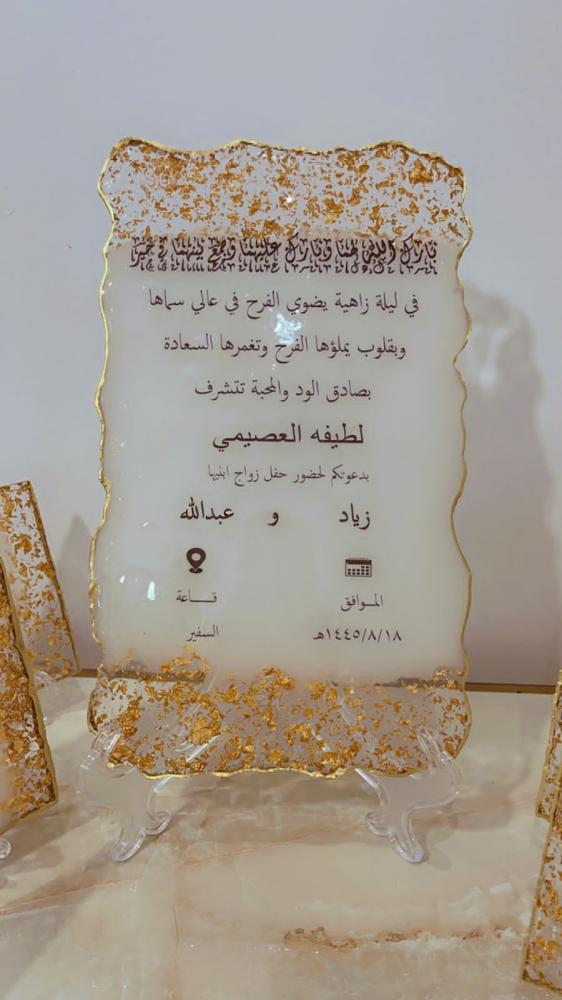 بارك الله لهما وبارك عليهما وجمع بينهما في خير
في ليلة زاهية يضوي الفرح في عالي سماها
وبقلوب يملؤها الفرح وتغمرها السعادة
بصادق الود والمحبة تتشرف
لطيفه العصيمي
بدعوتكم لحضور حفل زواج ابنيها
زياد و عبدالله
الموافق قاعة
١٤٤٥/٨/١٨هـ السفير